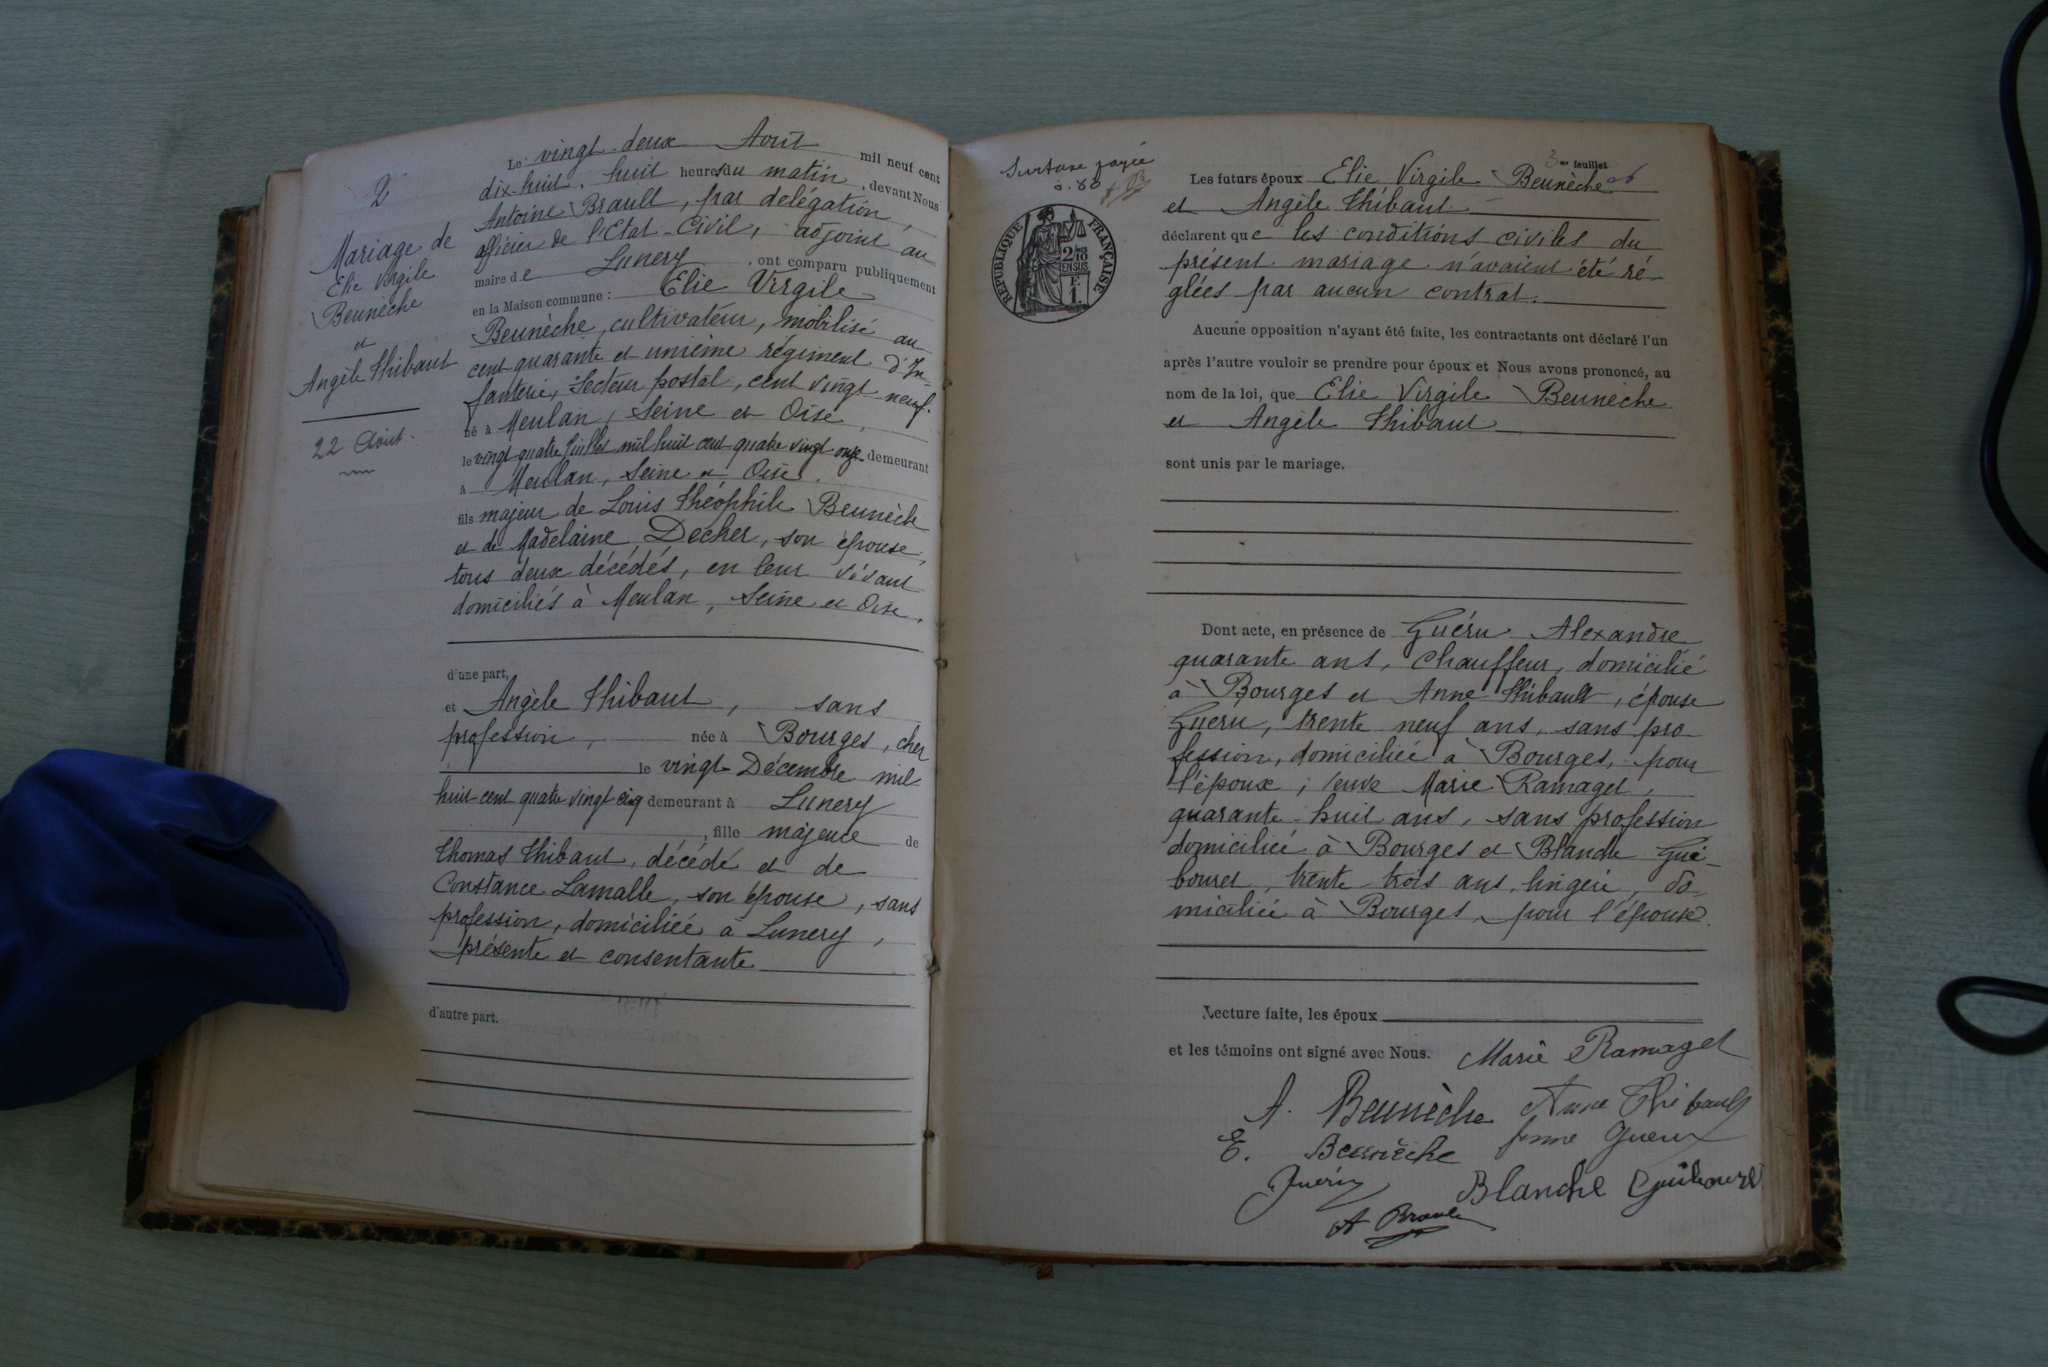 2
Mariage de
Elie Virgile
Beunèche
et
Angèle Thibaut
22 Août.
Le vingt deux Août mil neuf cent
dix-huit, huit heures du matin, devant Nous
Antoine Brault, par délégation,
officier de l'Etat-Civil, adjoint au
maire de Lunery, ont comparu publiquement
en la Maison commune : Elie Virgile
Beunèche, cultivateur, mobilisé au
cent quarante et unième régiment d'In-
fanterie, Secteur postal, cent vingt neuf.
né à Meulan, Seine et Oise,
le vingt quatre Juillet mil huit cent quatre vingt onze demeurant
à Meulan, Seine et Oise.
fils majeur de Louis Théophile Beunèche
et de Madelaine Decher, son épouse,
tous deux décédés, en leur vivant
domiciliés à Meulan, Seine et Oise.
d'une part,
et Angèle Thibaut, sans
profession, née à Bourges, cher
le vingt Décembre mil
huit cent quatre vingt cinq demeurant à Lunery
, fille majeure de
Thomas Thibaut, décédé et de
Constance Lamalle, son épouse, sans
profession, domiciliée à Lunery,
présente et consentante
d'autre part.
Surtaxe payée
0.60
RÉPUBLIQUE FRANÇAISE
2/10
EN SUS
F
1.
3me feuillet
Les futurs époux Elie Virgile Beunèche
et Angèle Thibaut
déclarent que les conditions civiles du
présent mariage n'avaient été ré-
glées par aucun contrat.
Aucune opposition n'ayant été faite, les contractants ont déclaré l'un
après l'autre vouloir se prendre pour époux et Nous avons prononcé, au
nom de la loi, que Elie Virgile Beunèche
et Angèle Thibaut
sont unis par le mariage.
Dont acte, en présence de Guéru Alexandre
quarante ans, chauffeur, domicilié
à Bourges et Anne Thibault, épouse
Guéru, trente neuf ans, sans pro-
fession, domiciliée à Bourges, pour
l'époux ; veuve Marie Ramaget,
quarante-huit ans, sans profession
domiciliée à Bourges et Blanche Gui-
bouret, trente-trois ans, lingère, do-
miciliée à Bourges, pour l'épouse.
Lecture faite, les époux
et les témoins ont signé avec Nous. Marie Ramaget
A. Beunèche Anne Thibault
E. Beunèche femme Gueru
Guéru Blanche Guibouret
A Brault